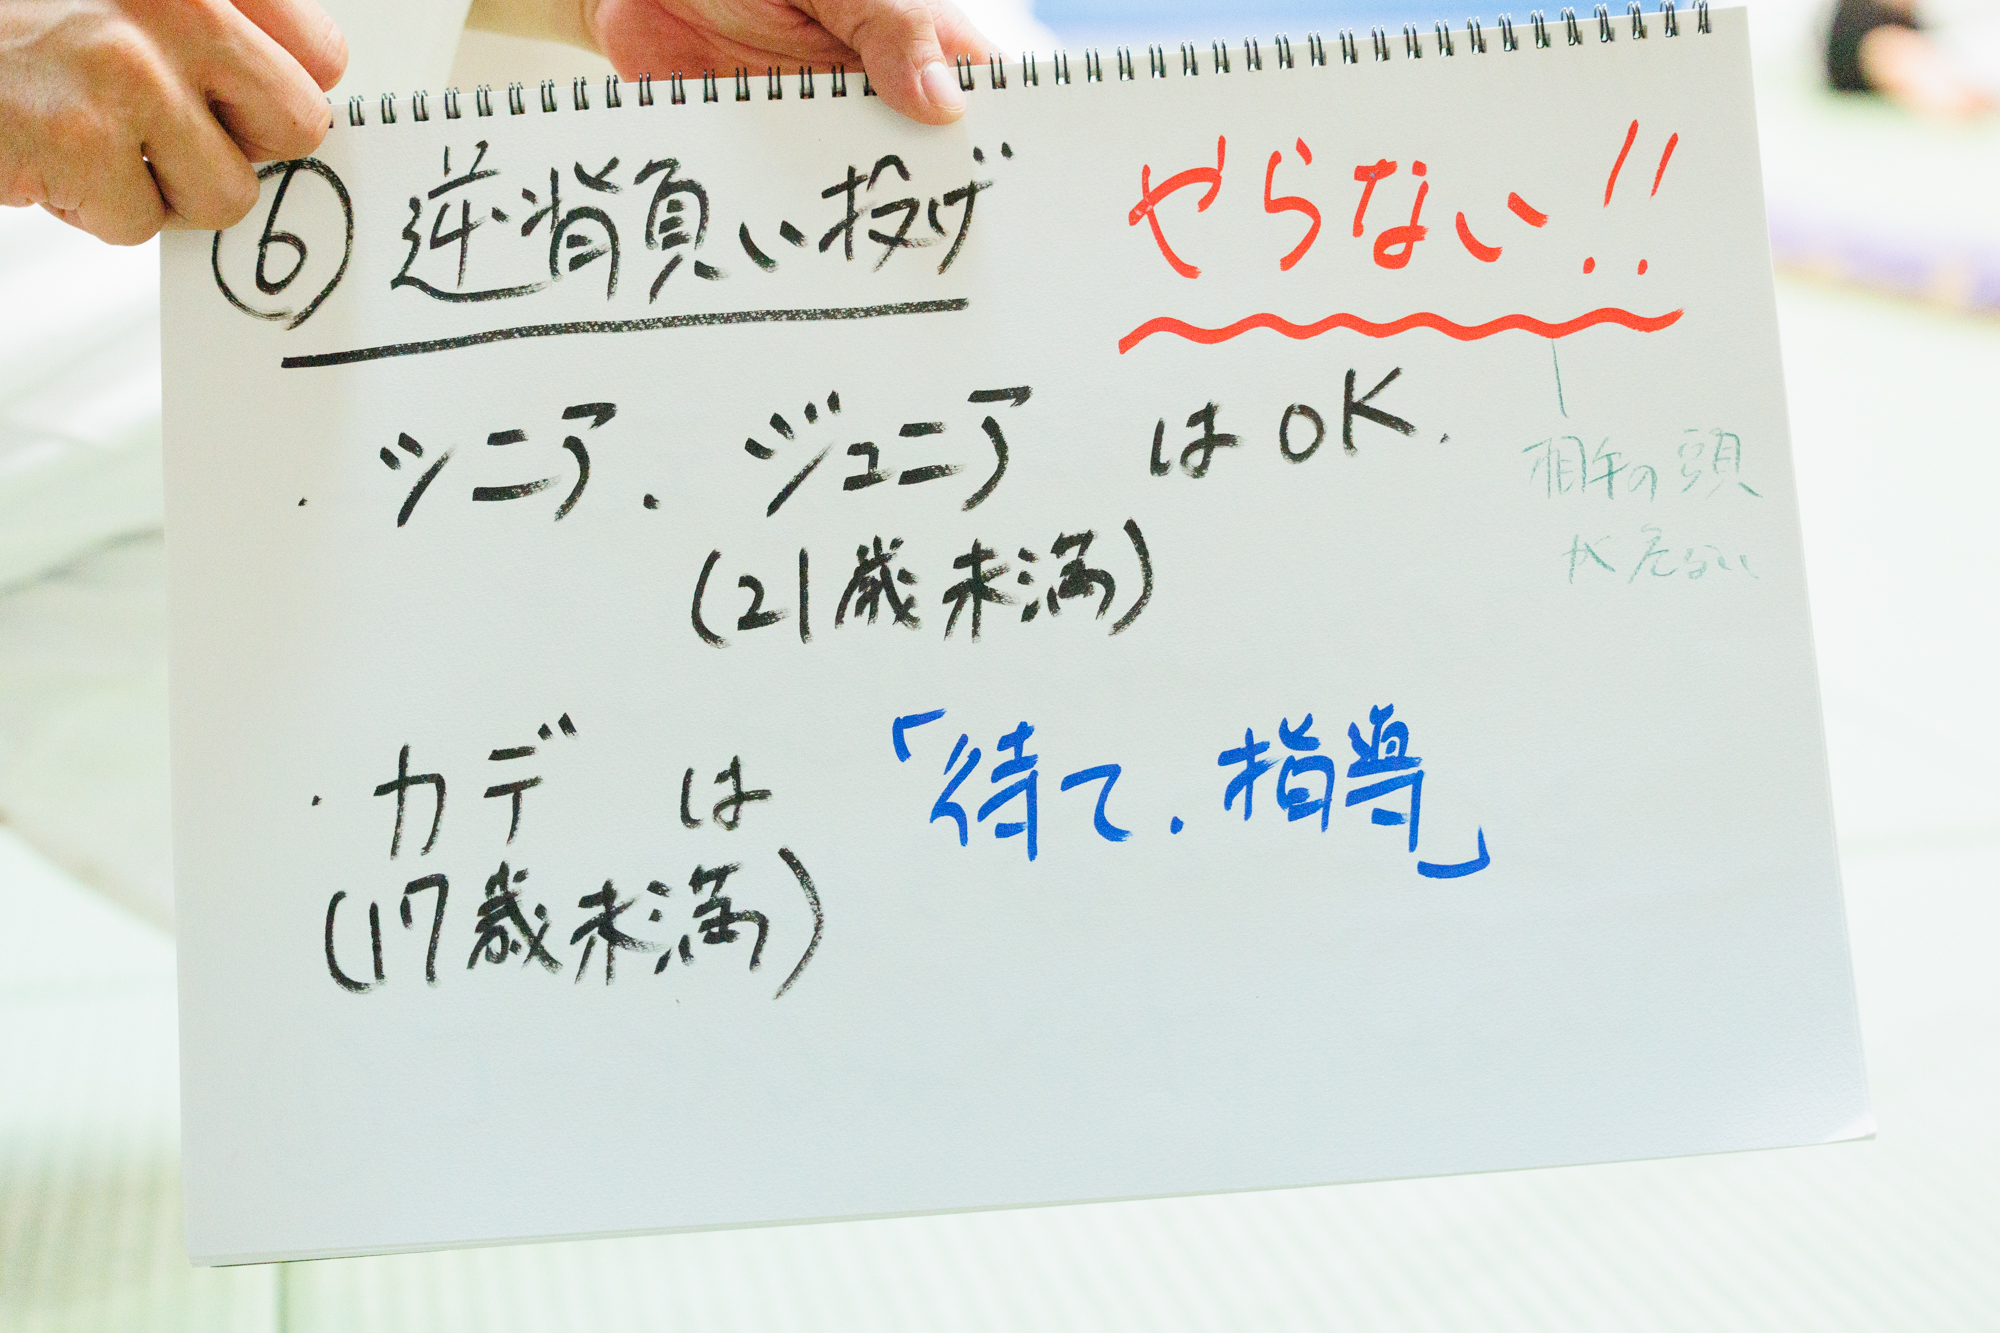 ⑥ 逆背負い投げ やらない!!
・シニア、ジュニア はOK.
(21歳未満)
相手の頭
が危ない
・カデ は 「待て、指導」
(17歳未満)